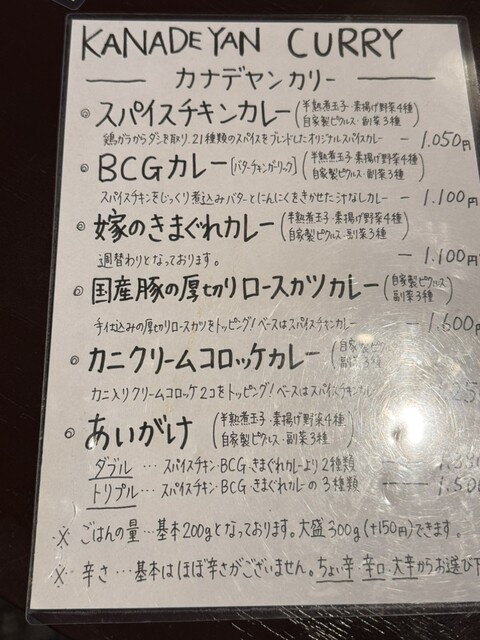 KANADEYAN CURRY
カナデヤンカリー
◎ スパイスチキンカレー (半熟煮玉子・素揚げ野菜4種
自家製ピクルス・副菜3種)
鶏ガラからダシを取り、21種類のスパイスをブレンドしたオリジナルスパイスカレー ー 1.050円
◎ BCGカレー [バターチキンガーリック] (半熟煮玉子・素揚げ野菜4種
自家製ピクルス・副菜3種)
スパイスチキンをじっくり煮込みバターとにんにくをきかせた汁なしカレー ー 1.100円
◎ 嫁のきまぐれカレー (半熟煮玉子・素揚げ野菜4種
自家製ピクルス・副菜3種)
週替わりとなっております。 ー 1.100円
◎ 国産豚の厚切りロースカツカレー (自家製ピクルス
副菜3種)
手仕込みの厚切りロースカツをトッピング!ベースはスパイスチキンカレー ー 1.600円
◎ カニクリームコロッケカレー (自家製ピクルス
副菜3種)
カニ入りクリームコロッケ2コをトッピング!ベースはスパイスチキンカレー
◎ あいがけ (半熟煮玉子・素揚げ野菜4種
自家製ピクルス・副菜3種)
ダブル … スパイスチキン・BCG・きまぐれカレーより2種類
トリプル … スパイスチキン・BCG・きまぐれカレーの3種類 ー 1.50
※ ごはんの量…基本200gとなっております。大盛300g(+150円)できます。
※ 辛さ…基本はほぼ辛さがございません。ちょい辛・辛口・大辛からお選び下